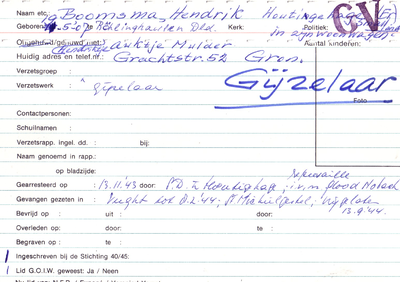 Naam etc. Boomsma, Hendrik
GV
Geboren 07 Recklinghausen Dld. Kerk: Politiek:
in zijn woonwagen
Ongehuwd/gehuwd met: Auktje Mulder Aantal kinderen:
Huidig adres en telef.nr.: Grachtstr. 52 Gron.
Verzetsgroep :
Verzetswerk : gijzelaar
Gijzelaar
Foto
Contactpersonen:
Schuilnaam :
Verzetsrapp. ingel. dd. : bij:
Naam genoemd in rapp:
op bladzijde:
Gearresteerd op : 13.11.43 door: S.D. in Houtigehage, i.v.m.
represaille
Gevangen gezeten in : Vught tot 8.2.'44; St. Michielsgestel; vrijgelaten
13.9.'44.
Bevrijd op : uit : door:
Overleden op: door: te :
Begraven op : te :
Ingeschreven bij de Stichting 40/45:
Lid G.O.I.W. geweest: Ja / Neen